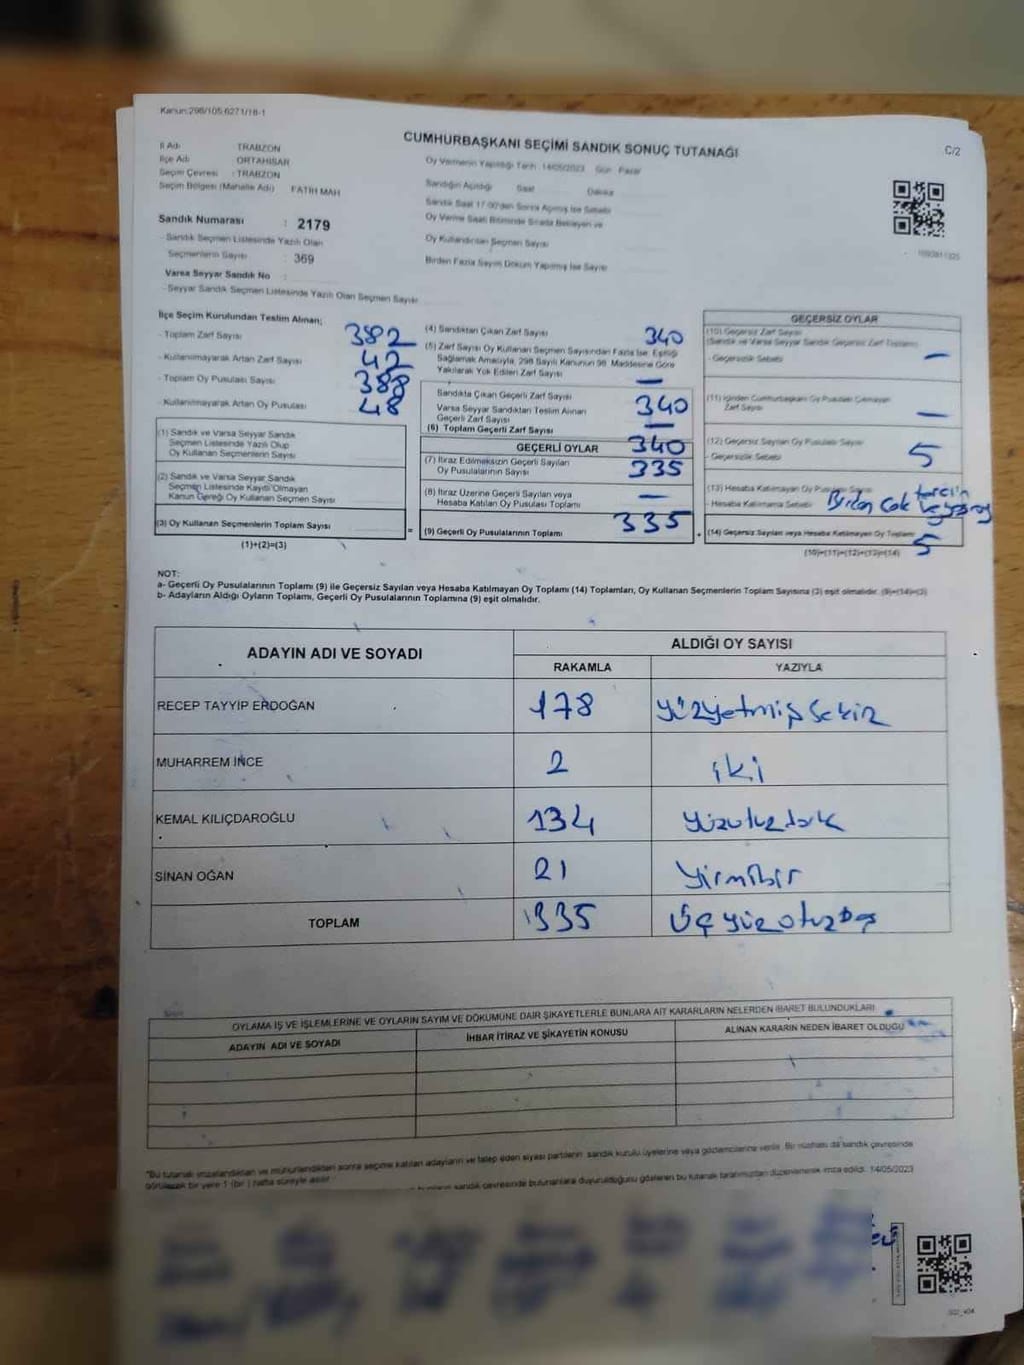 Kanun:298/105.6271/18-1
CUMHURBAŞKANI SEÇİMİ SANDIK SONUÇ TUTANAĞI
C/2
İl Adı TRABZON
İlçe Adı ORTAHİSAR
Seçim Çevresi : TRABZON
Seçim Bölgesi (Mahalle Adı) FATİH MAH
Oy Vermenin Yapıldığı Tarih : 14/05/2023 Gün : Pazar
Sandığın Açıldığı Saat Dakika
Sandık Saat 17:00'den Sonra Açılmış İse Sebebi
Oy Verme Saati Bitiminde Sırada Bekleyen ve
Oy Kullandırılan Seçmen Sayısı
Birden Fazla Sayım Döküm Yapılmış İse Sayısı
Sandık Numarası : 2179
- Sandık Seçmen Listesinde Yazılı Olan
Seçmenlerin Sayısı : 369
Varsa Seyyar Sandık No :
- Seyyar Sandık Seçmen Listesinde Yazılı Olan Seçmen Sayısı
İlçe Seçim Kurulundan Teslim Alınan;
- Toplam Zarf Sayısı 382
- Kullanılmayarak Artan Zarf Sayısı 42
- Toplam Oy Pusulası Sayısı 388
- Kullanılmayarak Artan Oy Pusulası 48
(1) Sandık ve Varsa Seyyar Sandık
Seçmen Listesinde Yazılı Olup
Oy Kullanan Seçmenlerin Sayısı
(2) Sandık ve Varsa Seyyar Sandık
Seçmen Listesinde Kayıtlı Olmayan
Kanun Gereği Oy Kullanan Seçmen Sayısı
(3) Oy Kullanan Seçmenlerin Toplam Sayısı
(1)+(2)=(3)
(4) Sandıktan Çıkan Zarf Sayısı 340
(5) Zarf Sayısı Oy Kullanan Seçmen Sayısından Fazla İse, Eşitliği
Sağlamak Amacıyla, 298 Sayılı Kanunun 98. Maddesine Göre
Yakılarak Yok Edilen Zarf Sayısı —
Sandıkta Çıkan Geçerli Zarf Sayısı 340
Varsa Seyyar Sandıktan Teslim Alınan
Geçerli Zarf Sayısı —
(6) Toplam Geçerli Zarf Sayısı 340
GEÇERLİ OYLAR
(7) İtiraz Edilmeksizin Geçerli Sayılan
Oy Pusulalarının Sayısı 335
(8) İtiraz Üzerine Geçerli Sayılan veya
Hesaba Katılan Oy Pusulası Toplamı —
= (9) Geçerli Oy Pusulalarının Toplamı 335
GEÇERSİZ OYLAR
(10) Geçersiz Zarf Sayısı
(Sandık ve Varsa Seyyar Sandık Geçersiz Zarf Toplamı)
- Geçersizlik Sebebi —
(11) İçinden Cumhurbaşkanı Oy Pusulası Çıkmayan
Zarf Sayısı —
(12) Geçersiz Sayılan Oy Pusulası Sayısı
- Geçersizlik Sebebi 5
(13) Hesaba Katılmayan Oy Pusulası Sayısı
- Hesaba Katılmama Sebebi
+ (14) Geçersiz Sayılan veya Hesaba Katılmayan Oy Toplamı 5
(10)+(11)+(12)+(13)=(14)
NOT:
a- Geçerli Oy Pusulalarının Toplamı (9) ile Geçersiz Sayılan veya Hesaba Katılmayan Oy Toplamı (14) Toplamları, Oy Kullanan Seçmenlerin Toplam Sayısına (3) eşit olmalıdır. (9)+(14)=(3)
b- Adayların Aldığı Oyların Toplamı, Geçerli Oy Pusulalarının Toplamına (9) eşit olmalıdır.
ADAYIN ADI VE SOYADI ALDIĞI OY SAYISI
RAKAMLA YAZIYLA
RECEP TAYYİP ERDOĞAN 178 yüzyetmişsekiz
MUHARREM İNCE 2 iki
KEMAL KILIÇDAROĞLU 134 yüzotuzdört
SİNAN OĞAN 21 yirmibir
TOPLAM 335 Üçyüzotuzbeş
OYLAMA İŞ VE İŞLEMLERİNE VE OYLARIN SAYIM VE DÖKÜMÜNE DAİR ŞİKAYETLERLE BUNLARA AİT KARARLARIN NELERDEN İBARET BULUNDUKLARI
ADAYIN ADI VE SOYADI İHBAR İTİRAZ VE ŞİKAYETİN KONUSU ALINAN KARARIN NEDEN İBARET OLDUĞU
"Bu tutanak imzalandıktan ve mühürlendikten sonra seçime katılan adayların ve talep eden siyasi partilerin sandık kurulu üyelerine veya gözlemcilerine verilir. Bir nüshası da sandık çevresinde
görülecek bir yere 1 (bir ) hafta süreyle asılır. sandık çevresinde bulunanlara duyurulduğunu gösteren bu tutanak tarafımızdan düzenlenerek imza edildi. 14/05/2023